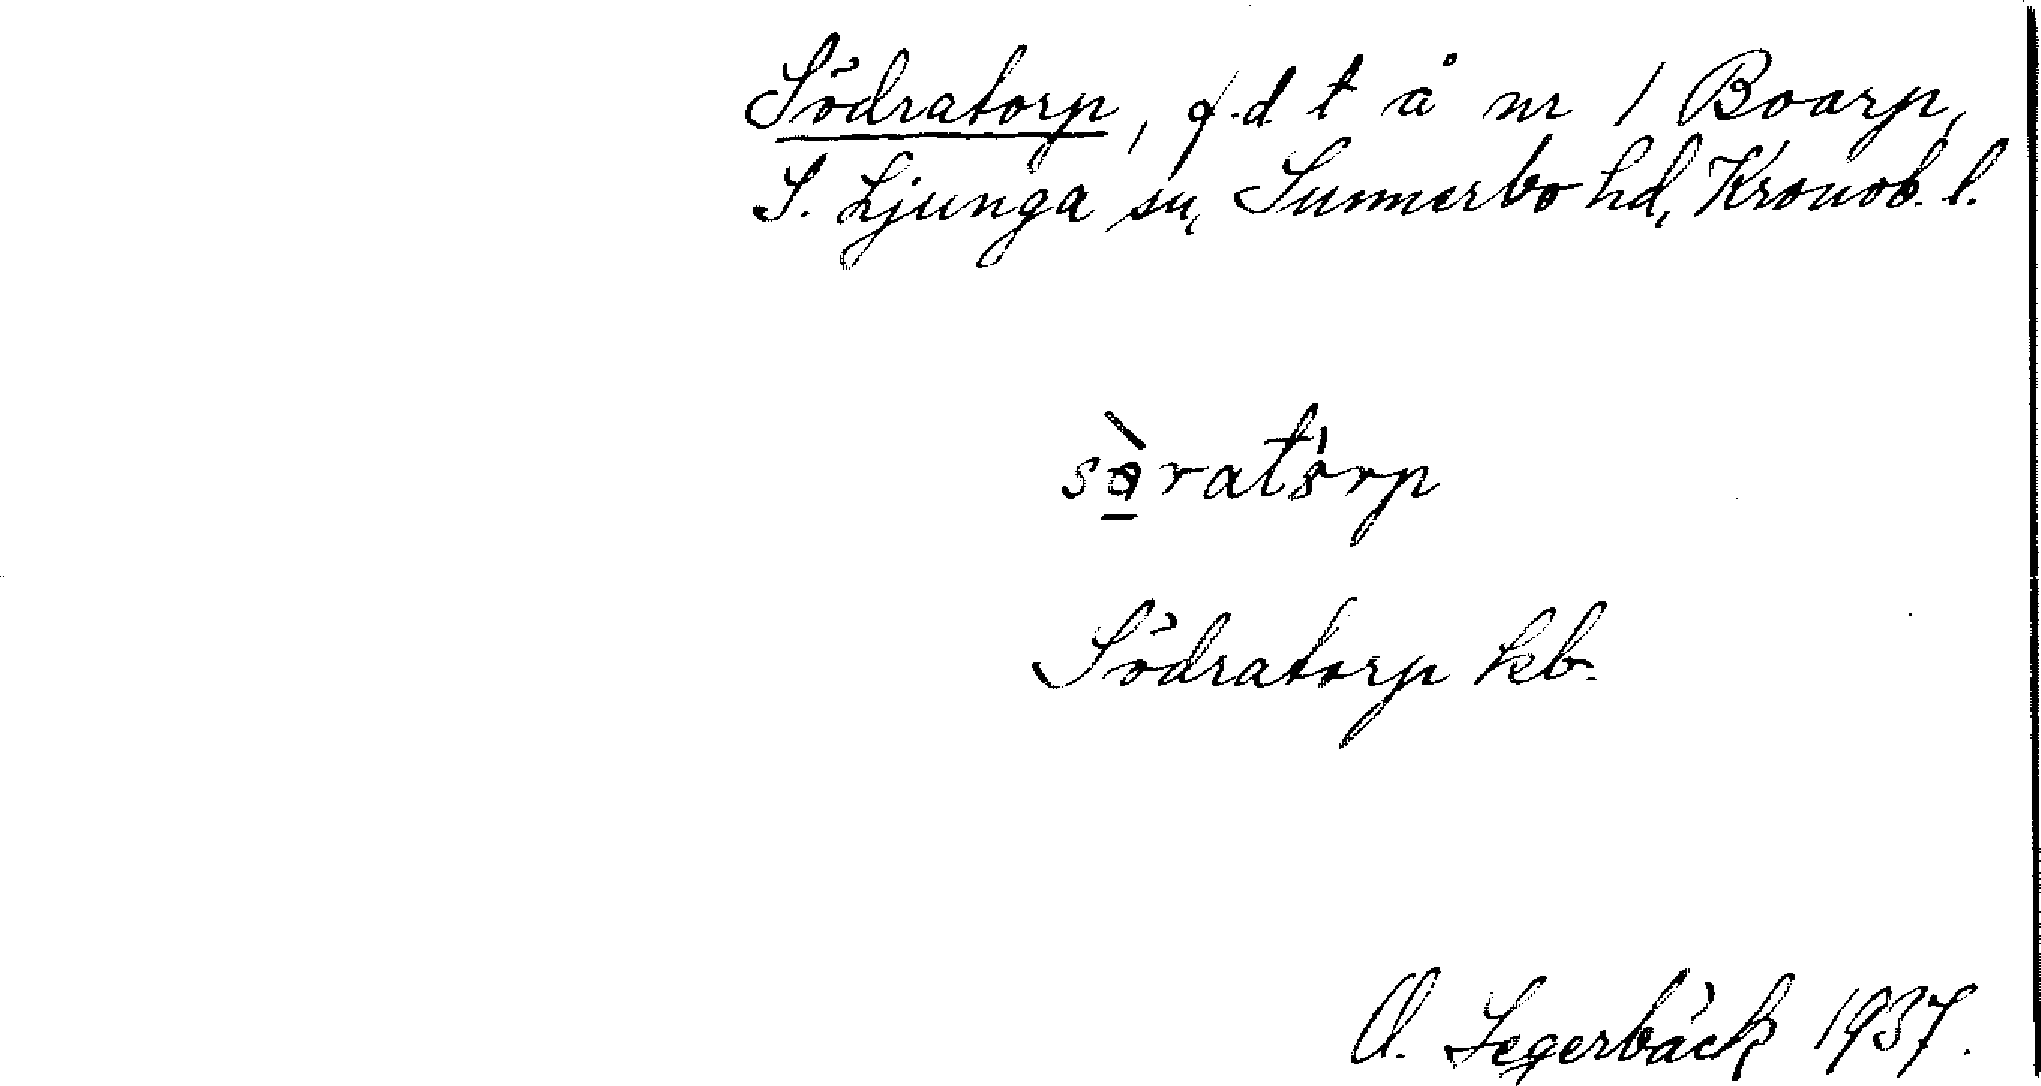 Södratorp, f.d t å nr 1 Boarp,
S. Ljunga sn, Sunnerbo hd, Kronob. l.
Södratorp kb.
O. Segerbäck 1937.